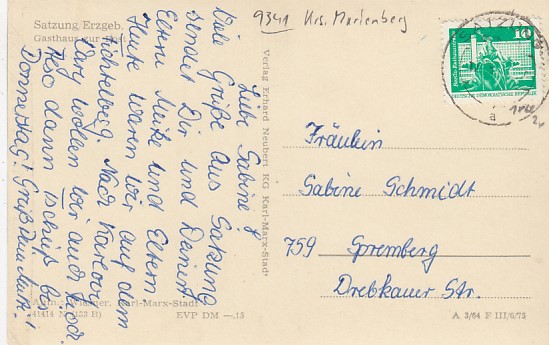 Satzung Erzgeb.
Gasthaus zur Post
9341 Krs. Marienberg
Liebe Sabine,
Viele Grüße aus Satzung
sendet Dir und Deinen
Eltern Meike und Eltern.
Heute waren wir auf dem
Fichtelberg. Nach Karlovy
Vary wollen wir auch noch.
Also dann tschüß bis
Donnstag! Gruß Deine
Verlag Erhard Neubert KG Karl-Marx-Stadt
SATZUNG
10
DEUTSCHE DEMOKRATISCHE REPUBLIK
a
Fräulein
Sabine Schmidt
759 Spremberg
Drebkauer Str.
Karl-Marx-Stadt
EVP DM —.15
A 3/64 F III/6/73